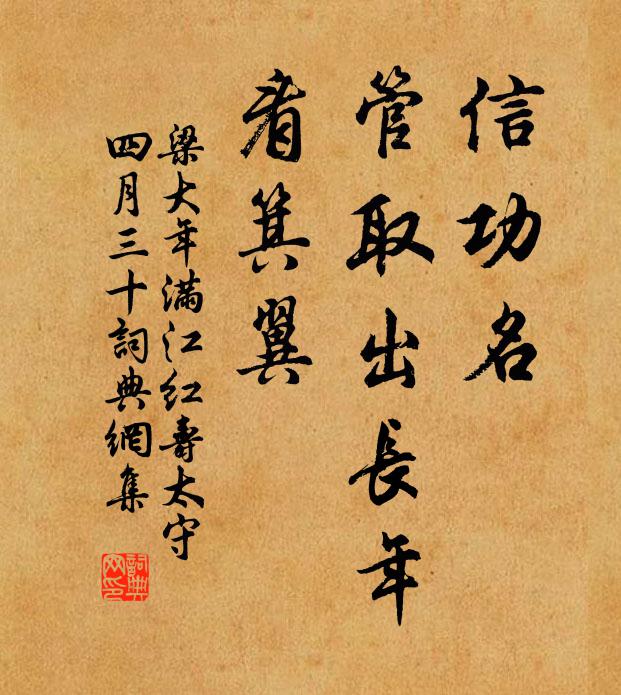 信功名
管取出長年
看箕翼
梁大年滿江紅壽太守
四月三十詞典網集
詞典網印